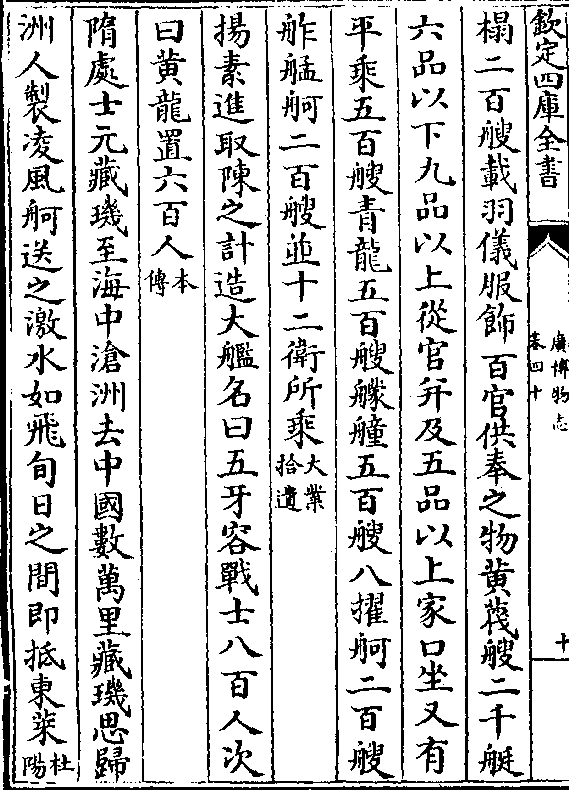 欽定四庫全書
廣博物志
卷四十
十
榻二百艘載羽儀服飾百官供奉之物黄䒁艘二千艇
六品以下九品以上從官并及五品以上家口坐又有
平乘五百艘青龍五百艘艨艟五百艘八擢舸二百艘
舴艋舸二百艘並十二衛所乘大業拾遺
揚素進取陳之計造大艦名曰五牙容戰士八百人次
曰黄龍置六百人本傳
隋處士元藏璣至海中滄洲去中國數萬里藏璣思歸
洲人製凌風舸送之激水如飛旬日之間即抵東萊杜陽